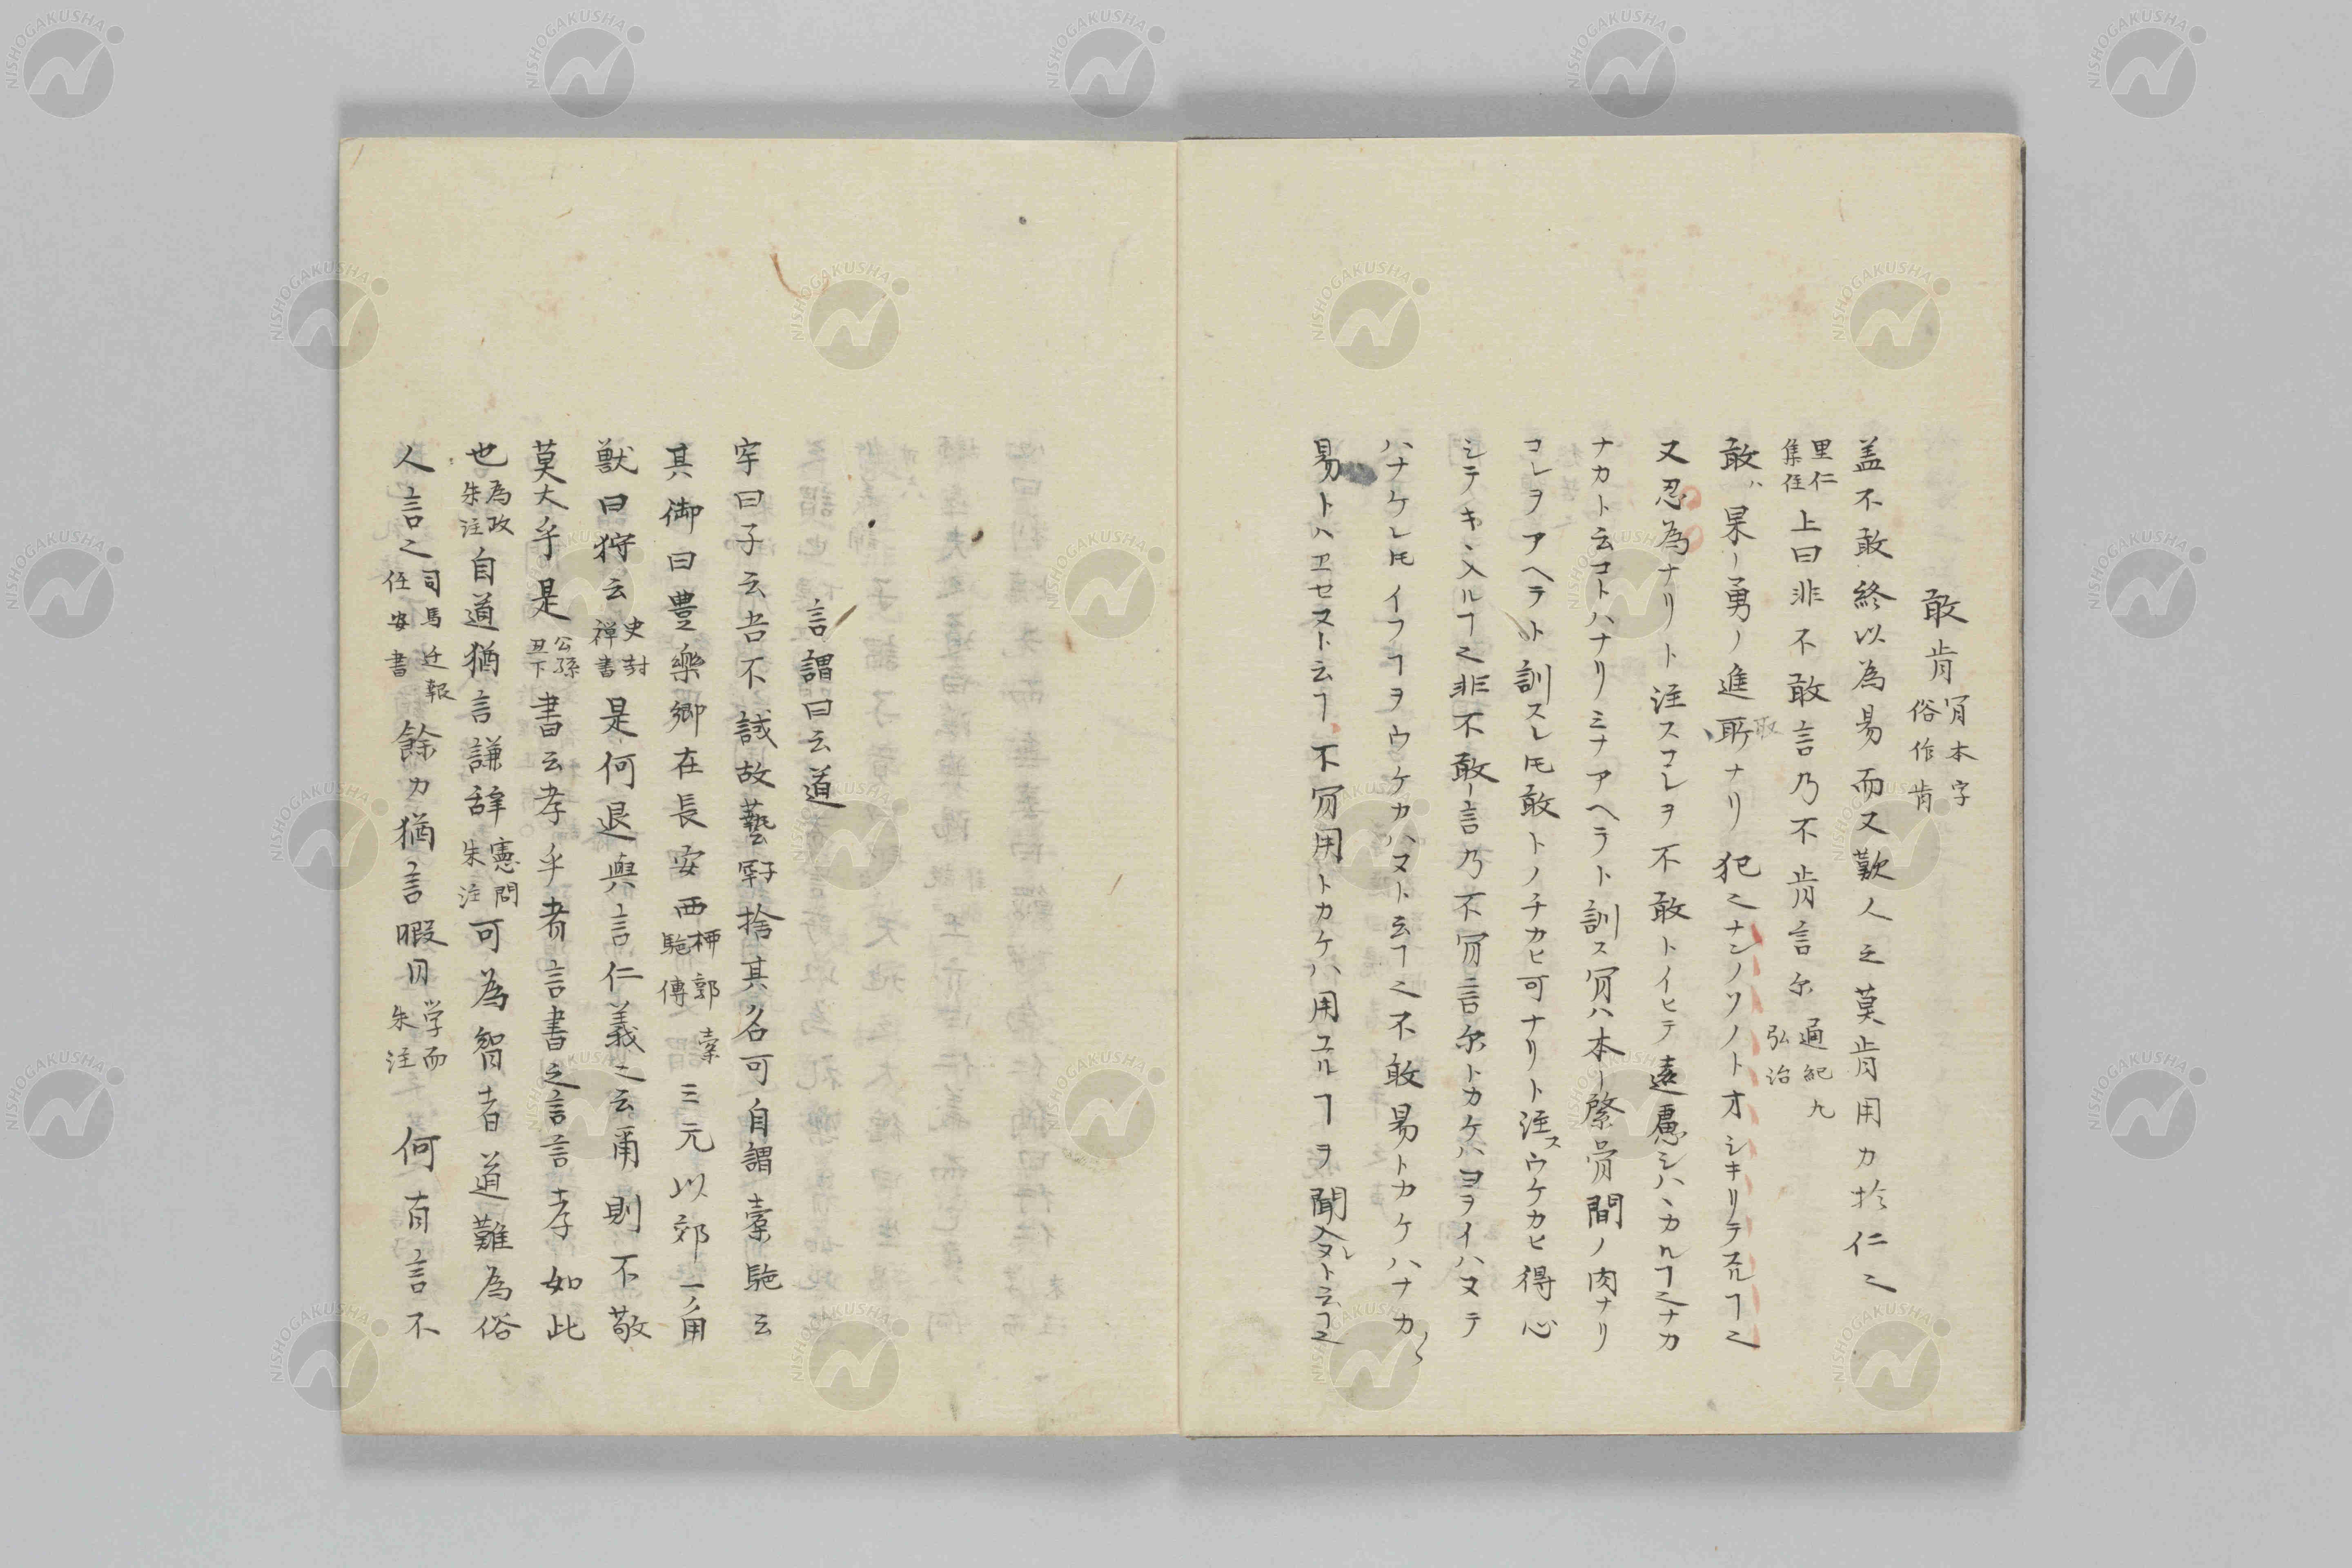 敢肯 肎本字俗作肯
盖不敢終以為易而又歎人之莫肯用力於仁之
里仁集注上曰非不敢言乃不肯言尓 通紀九弘治
敢ハ果ー勇ノ進取ナリ犯之ナンノソノトオシキリテスルヿ之
又忍為ナリト注スコレヲ不敢トイヒテ遠慮シハヽカルヿ之ナカ
ナカト云コトハナリミナアヘラト訓ス肎ハ本ー綮肯間ノ肉ナリ
コレヲアヘラト訓スレ𪜈敢トノチカヒ可ナリト注スウケカヒ得心
シテキヽ入ルヿ之非不敢ー言乃不肎言尓トカケハヨヲイハヌテ
ハナケレ𪜈イフヿヲウケカハヌト云ヿ之不敢易トカケハナカ〱
易トハヱセヌト云ヿ不肎用トカケハ用ユルヿヲ聞入ヌレトニ云ヿ之
言謂曰云道
牢曰子云吾不試故藝 子罕 捨其名可自謂槖駞云
其御曰豊樂郷在長安西 柳郭槖駞傳 三元以郊一ノ角
獣曰狩云 史封禅書 是何退與言仁義之云甬則不敬
莫大乎是 公孫丑下 書云孝乎者言書之言言孝如此
也 為政朱注 自道猶言謙辞 憲問朱注 可為智者道難為俗
人言之 司馬迁報任安書 餘力猶言暇日 学而朱注 何有言不
NISHOGAKUSHA